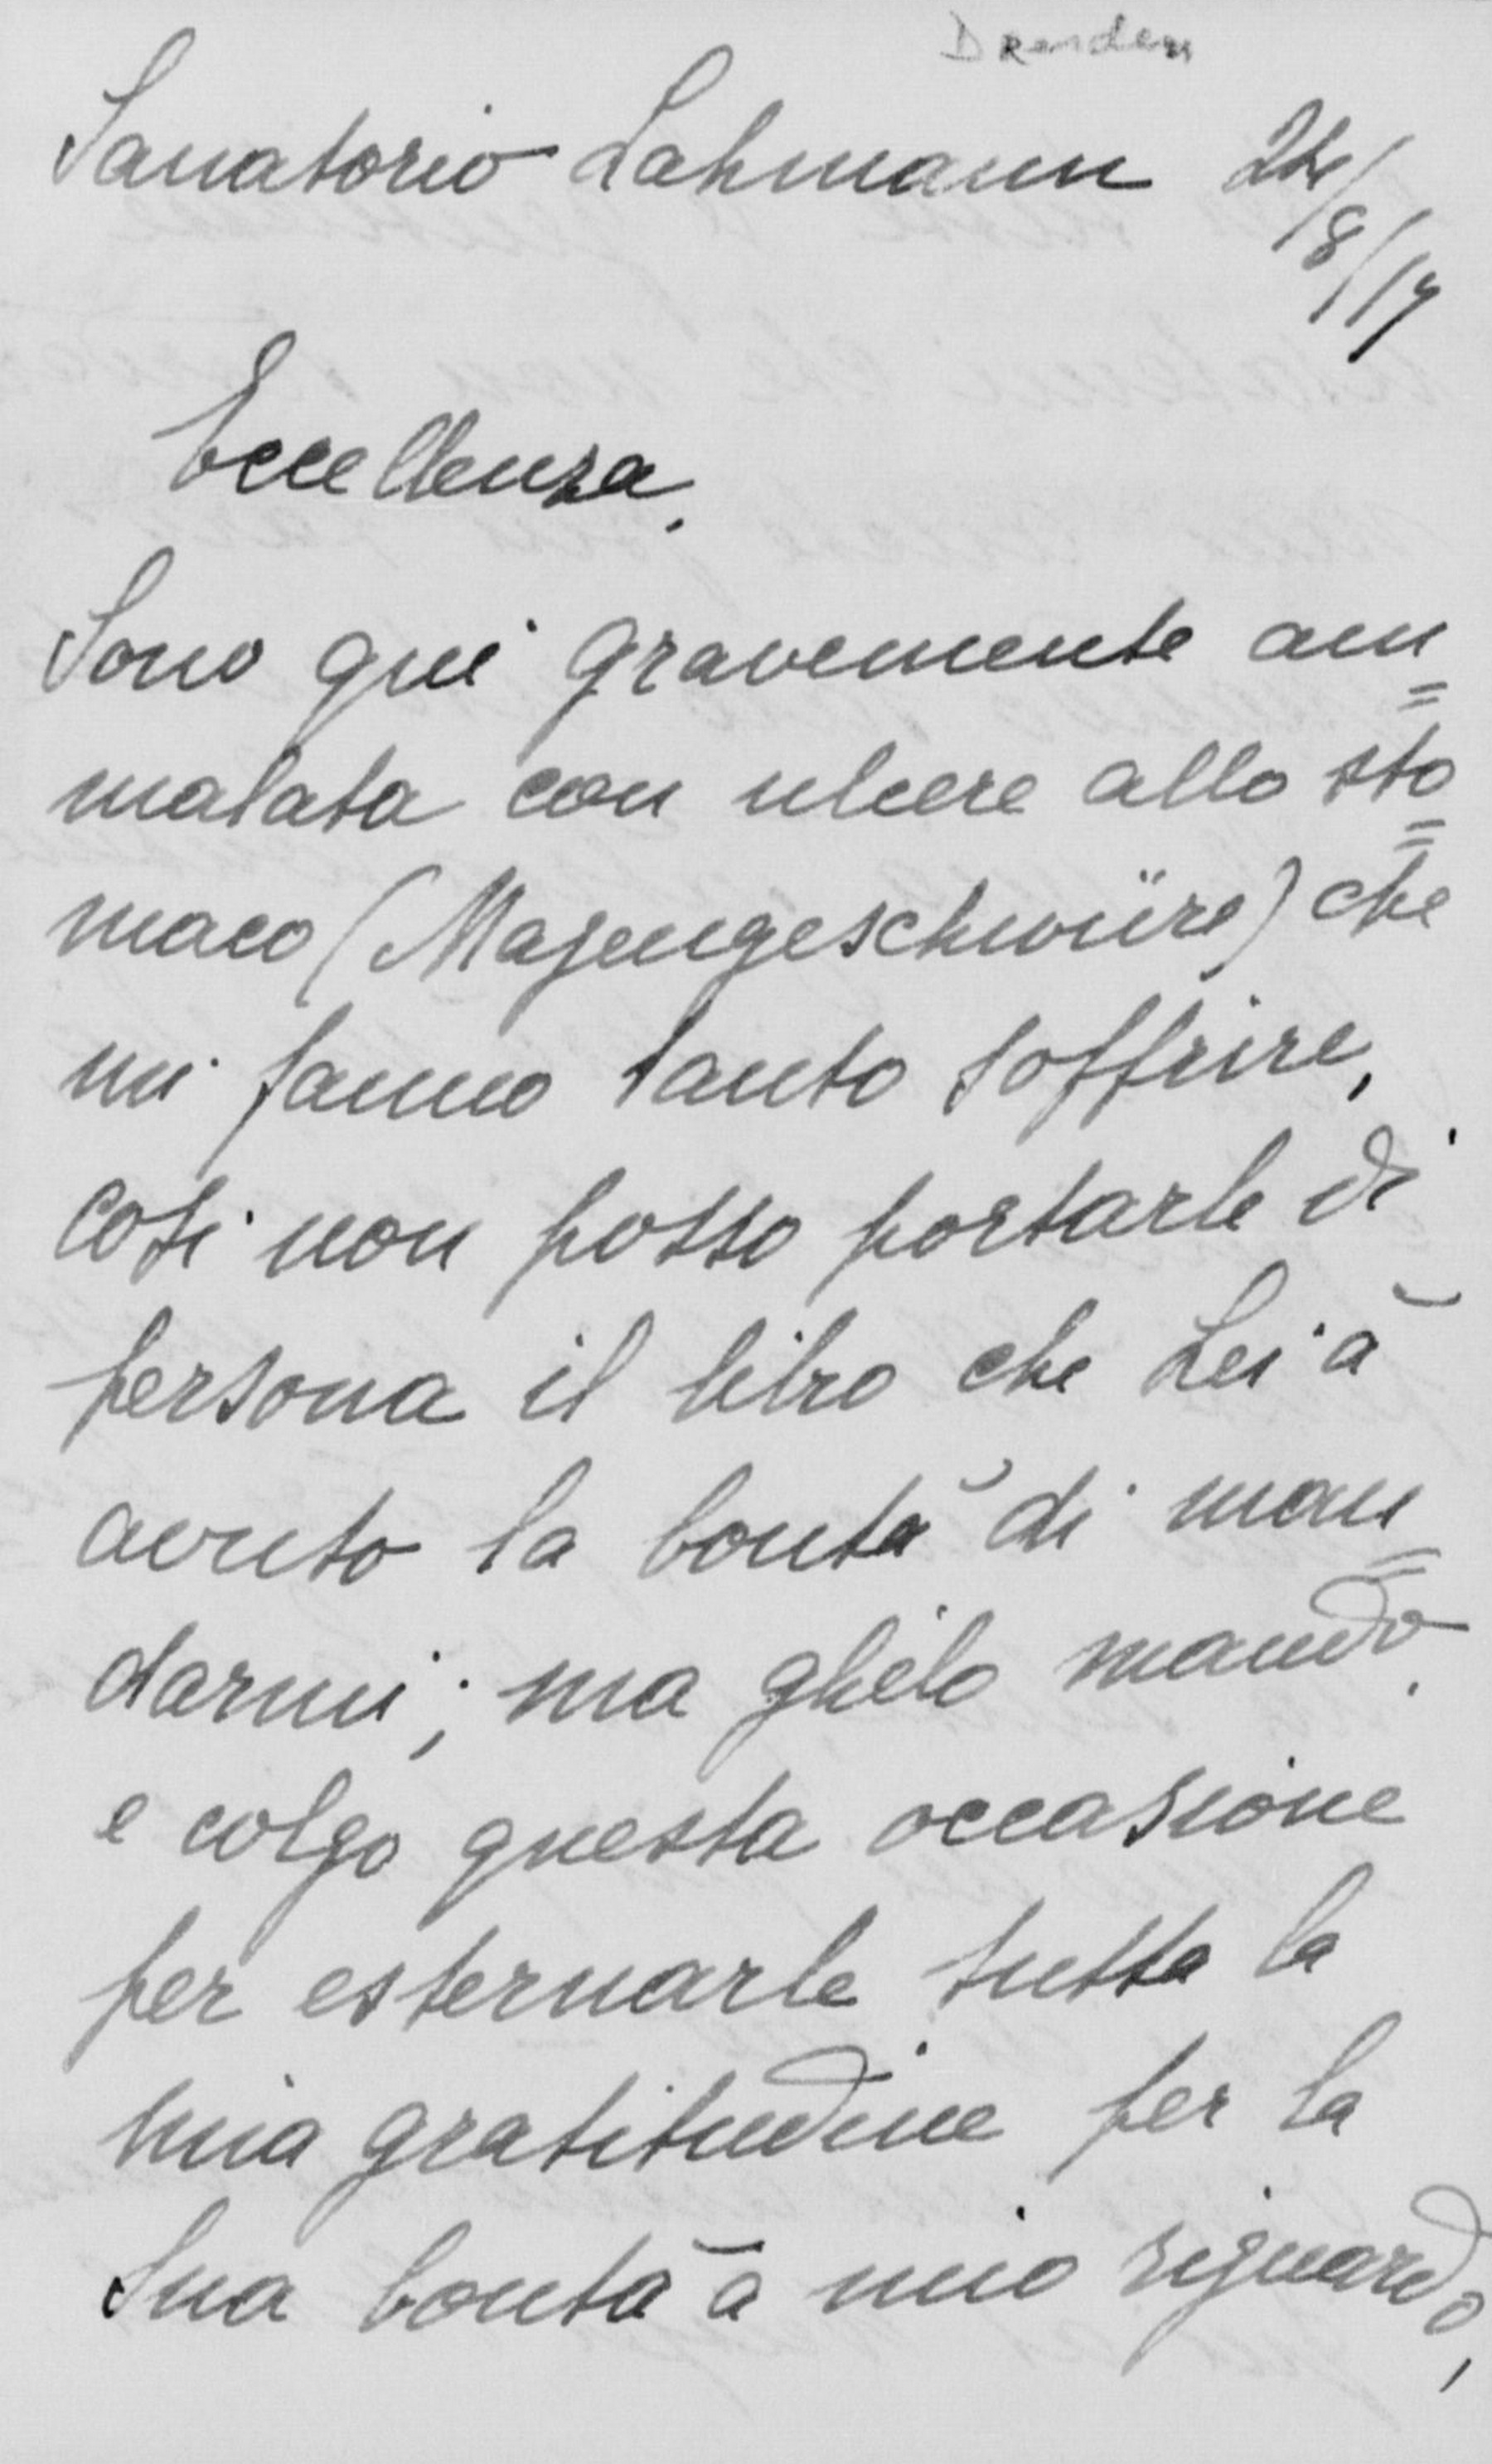 Dresden
Sanatorio Lahmann 24/8/17
Eccellenza,
Sono qui gravemente am=
malata con ulcere allo sto=
maco (Magengeschwüre) che
mi fanno tanto soffrire,
così non posso portarle di
persona il libro che Lei à
avuto la bontà di man=
darmi; ma ghelo mando,
e colgo questa occasione
per esternarle tutta la
mia gratitudine per la
Sua bontà à mio riguardo,